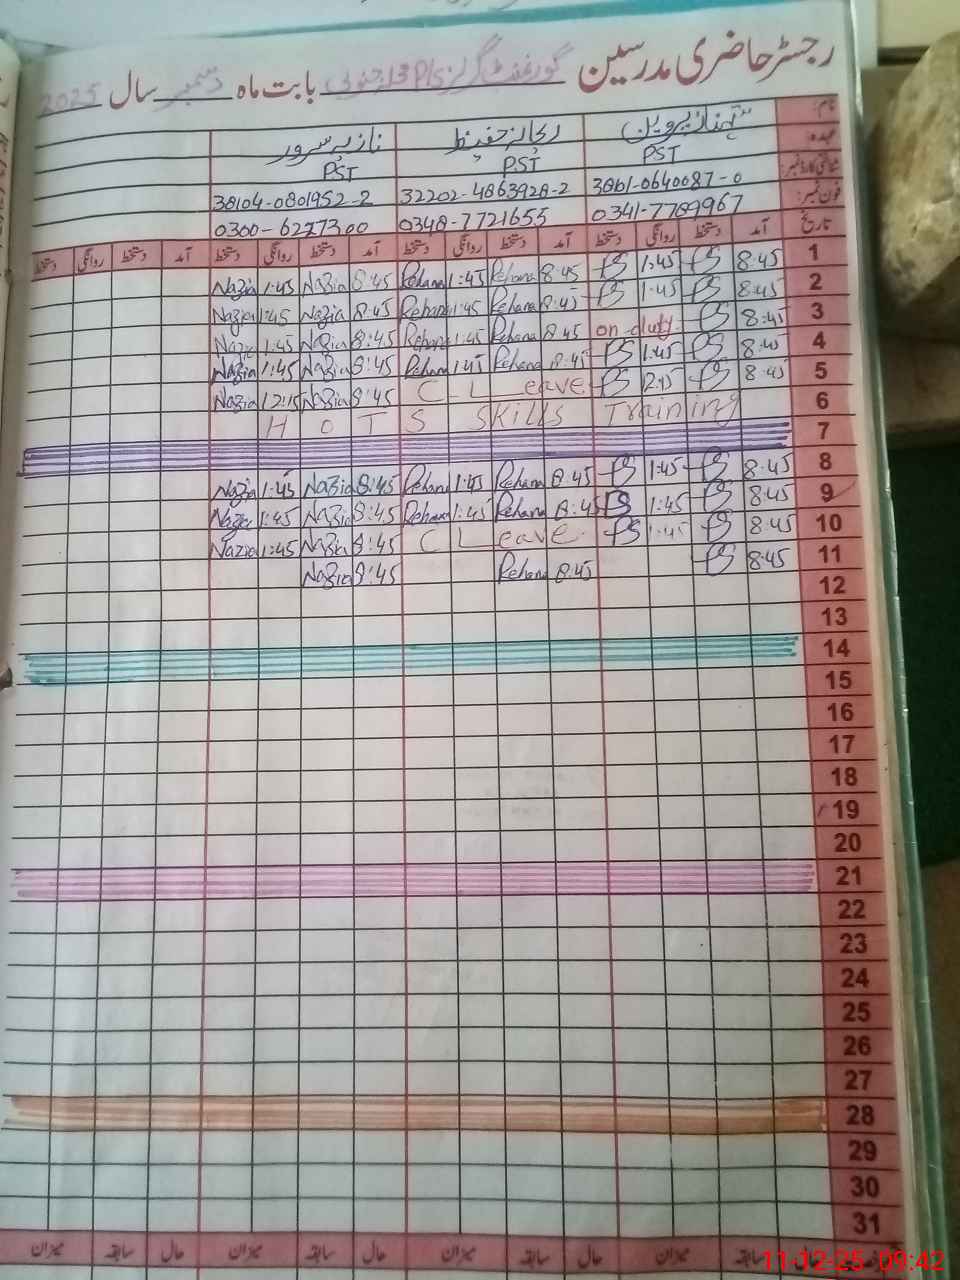 رجسٹر حاضری مدرسین گورنمنٹ گرلز P/S 13 جنوبی بابت ماہ دسمبر سال 2025
نام: شہناز پروین ریحانہ حفیظ نازیہ سرور
عہدہ: PST PST PST
شناختی کارڈ نمبر: 38101-0640087-0 32202-4863928-2 38104-0801952-2
فون نمبر: 0341-7789967 0348-7721655 0300-6227300
تاریخ آمد دستخط روانگی دستخط آمد دستخط روانگی دستخط آمد دستخط روانگی دستخط آمد دستخط روانگی دستخط
1 8:45 1:45 8:45 Rehana 1:45 Rehana 8:45 Nazia 1:45 Nazia
2 8:45 1:45 8:45 Rehana 1:45 Rehana 8:45 Nazia 1:45 Nazia
3 8:45 on duty 8:45 Rehana 1:45 Rehana 8:45 Nazia 1:45 Nazia
4 8:45 1:45 8:45 Rehana 1:45 Rehana 8:45 Nazia 1:45 Nazia
5 8:45 12:15 C Leave 8:45 Nazia 12:15 Nazia
6 HOTS Skills Training
7
8 8:45 1:45 8:45 Rehana 1:45 Rehana 8:45 Nazia 1:45 Nazia
9 8:45 1:45 8:45 Rehana 1:45 Rehana 8:45 Nazia 1:45 Nazia
10 8:45 1:45 C Leave 8:45 Nazia 1:45 Nazia
11 8:45 8:45 Rehana 8:45 Nazia
12
13
14
15
16
17
18
19
20
21
22
23
24
25
26
27
28
29
30
31
سابقہ میزان حال سابقہ میزان حال سابقہ میزان حال سابقہ میزان
11-12-25 09:42